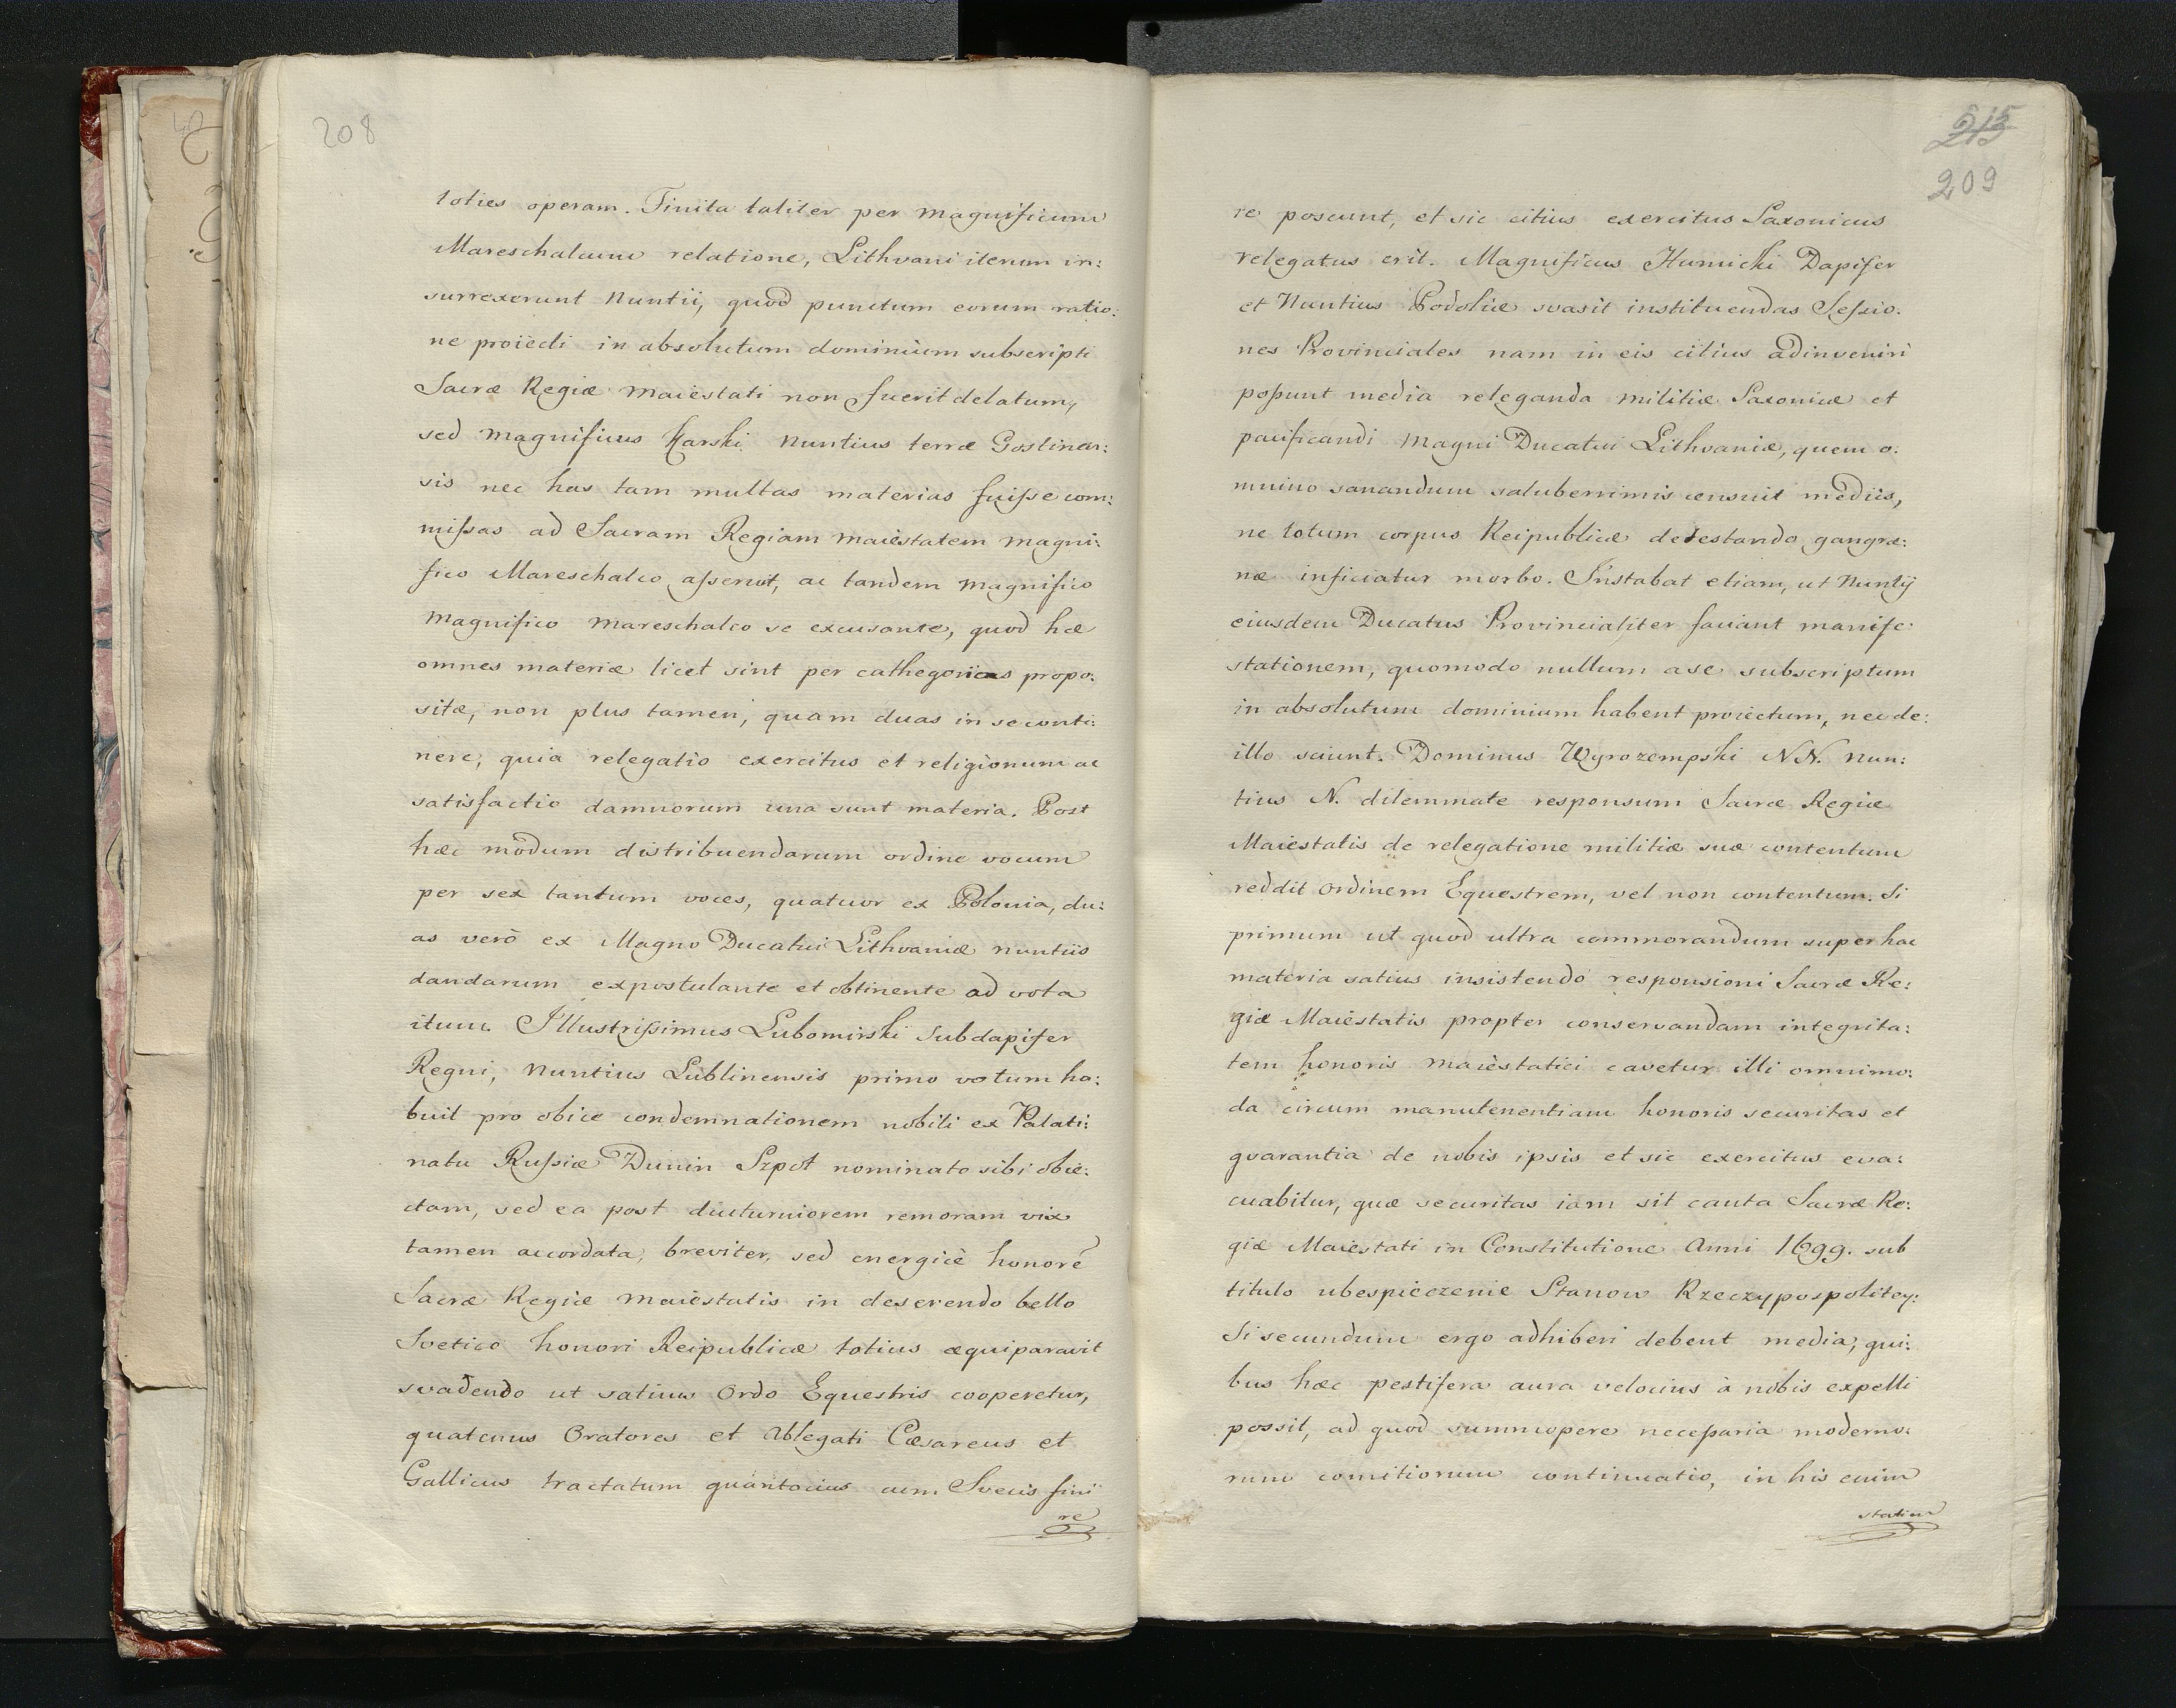 208
toties operam. Finita taliter per Magnificum
Mareschalcum relatione, Lithvani iterum in:
surrexerunt Nuntii, quod punctum eorum ratio:
ne proiecti in absolutum dominium subscripti
Sacræ Regiæ Maiestati non fuerit delatum,
sed Magnificus Karski Nuntius terræ Gostinen:
sis nec has tam multas materias fuiſse com:
miſsas ad Sacram Regiam Maiestatem Magni:
fico Mareschalco aſseruit, ac tandem Magnifico
Magnifico Mareschalco se excusante, quod hæ
omnes materiæ licet sint per cathegoricas propo:
sitæ, non plus tamen, quam duas in se conti:
nere, quia relegatio exercitus et religionum ac
satisfactio damnorum una sunt materia. Post
hæc modum distribuendarum ordine vocum
per sex tantum voces, quatuor ex Polonia, du:
as verò ex Magno Ducatui Lithvaniæ nuntiis
dandarum expostulante et obtinente ad vota
itum. Illustriſsimus Lubomirski Subdapifer
Regni, Nuntius Lublinensis primo votum ha:
buit pro obice condemnationem nobili ex Palati:
natu Ruſsiæ Dunin Szpot nominato sibi obie:
ctam, sed ea post diuturniorem remoram vix
tamen accordata, breviter, sed energicè honorē
Sacræ Regiæ Maiestatis in deserendo bello
Svetico honori Reipublicæ totius æquiparavit
svadendo ut satius Ordo Equestris cooperetur,
quatenus Oratores et Ablegati Cæsareus et
Gallicus tractatum quantocius cum Svecis fini
re
215
209
re poscunt, et sic citius exercitus Saxonicus
relegatus erit. Magnificus Humicki Dapifer
et Nuntius Podoliæ svasit instituendas Seſsio:
nes Provinciales nam in eis citius adinveniri
poſsunt media releganda militiæ Saxonicæ et
pacificandi Magni Ducatui Lithvaniæ, quem o:
mnino sanandum saluberrimis censuit mediis,
ne totum corpus Reipublicæ detestando gangræ:
næ inficiatur morbo. Instabat etiam, ut Nuntij
eiusdem Ducatus Provincialiter faciant manife:
stationem, quomodo nullum a se subscriptum
in absolutum dominium habent proiectum, nec de:
illo sciunt. Dominus Wyrozempski N.N. Nun:
tius N. dilemmate responsum Sacræ Regiæ
Maiestatis de relegatione militiæ suæ contentum
reddit Ordinem Equestrem, vel non contentum. Si
primum ut quod ultra commorandum super hac
materia satius insistendo responsioni Sacræ Re:
giæ Maiestatis propter conservandam integrita:
tem honoris Maiestatici cavetur illi omnimo:
da circum manutenentiam honoris securitas et
gvarantia de nobis ipsis et sic exercitus eva:
cuabitur, quæ securitas iam sit cauta Sacræ Re:
giæ Maiestati in Constitutione Anni 1699. sub
titulo ubespieczenie Stanow Rzeczypospolitey:
Si secundum ergo adhiberi debent media, qui:
bus hæc pestifera aura velocius à nobis expelli
possit, ad quod summopere neceſsaria moderno:
rum comitiorum continuatio, in his enim
statim